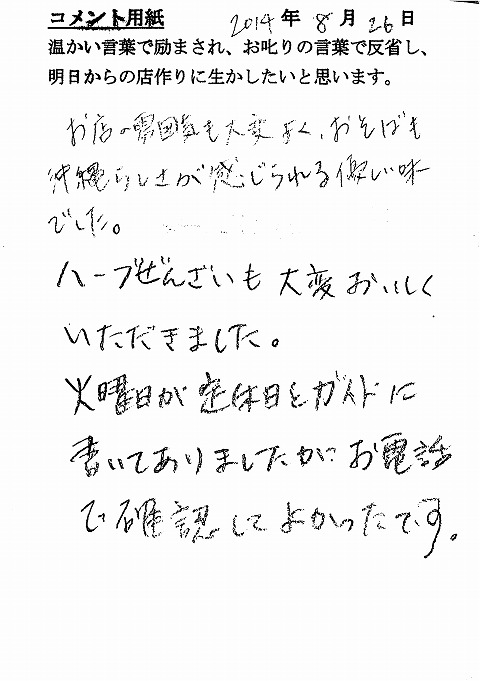 コメント用紙 2014年8月26日
温かい言葉で励まされ、お叱りの言葉で反省し、
明日からの店作りに生かしたいと思います。
お店の雰囲気も大変よく、おそばも
沖縄らしさが感じられる優しい味
でした。
ハーブぜんざいも大変おいしく
いただきました。
火曜日が定休日とガイドに
書いてありましたが、お電話
で確認してよかったです。